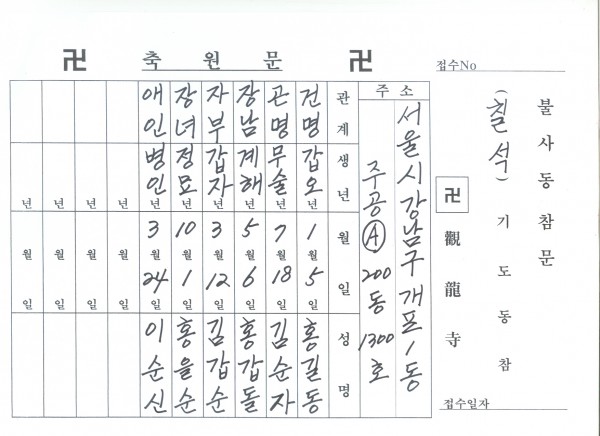 불사동참문
(칠석) 기도동참
卍 觀龍寺
접수No
접수일자
卍 축원문 卍
주소
서울시 강남구 개포1동
주공Ⓐ 200동 1300호
관계 생년 월 일 성명
건명 갑오년 1월 5일 홍길동
곤명 무술년 7월 18일 김순자
장남 계해년 5월 6일 홍갑돌
자부 갑자년 3월 12일 김갑순
장녀 정묘년 10월 1일 홍을순
애인 병인년 3월 24일 이순신
년 월 일
년 월 일
년 월 일
년 월 일